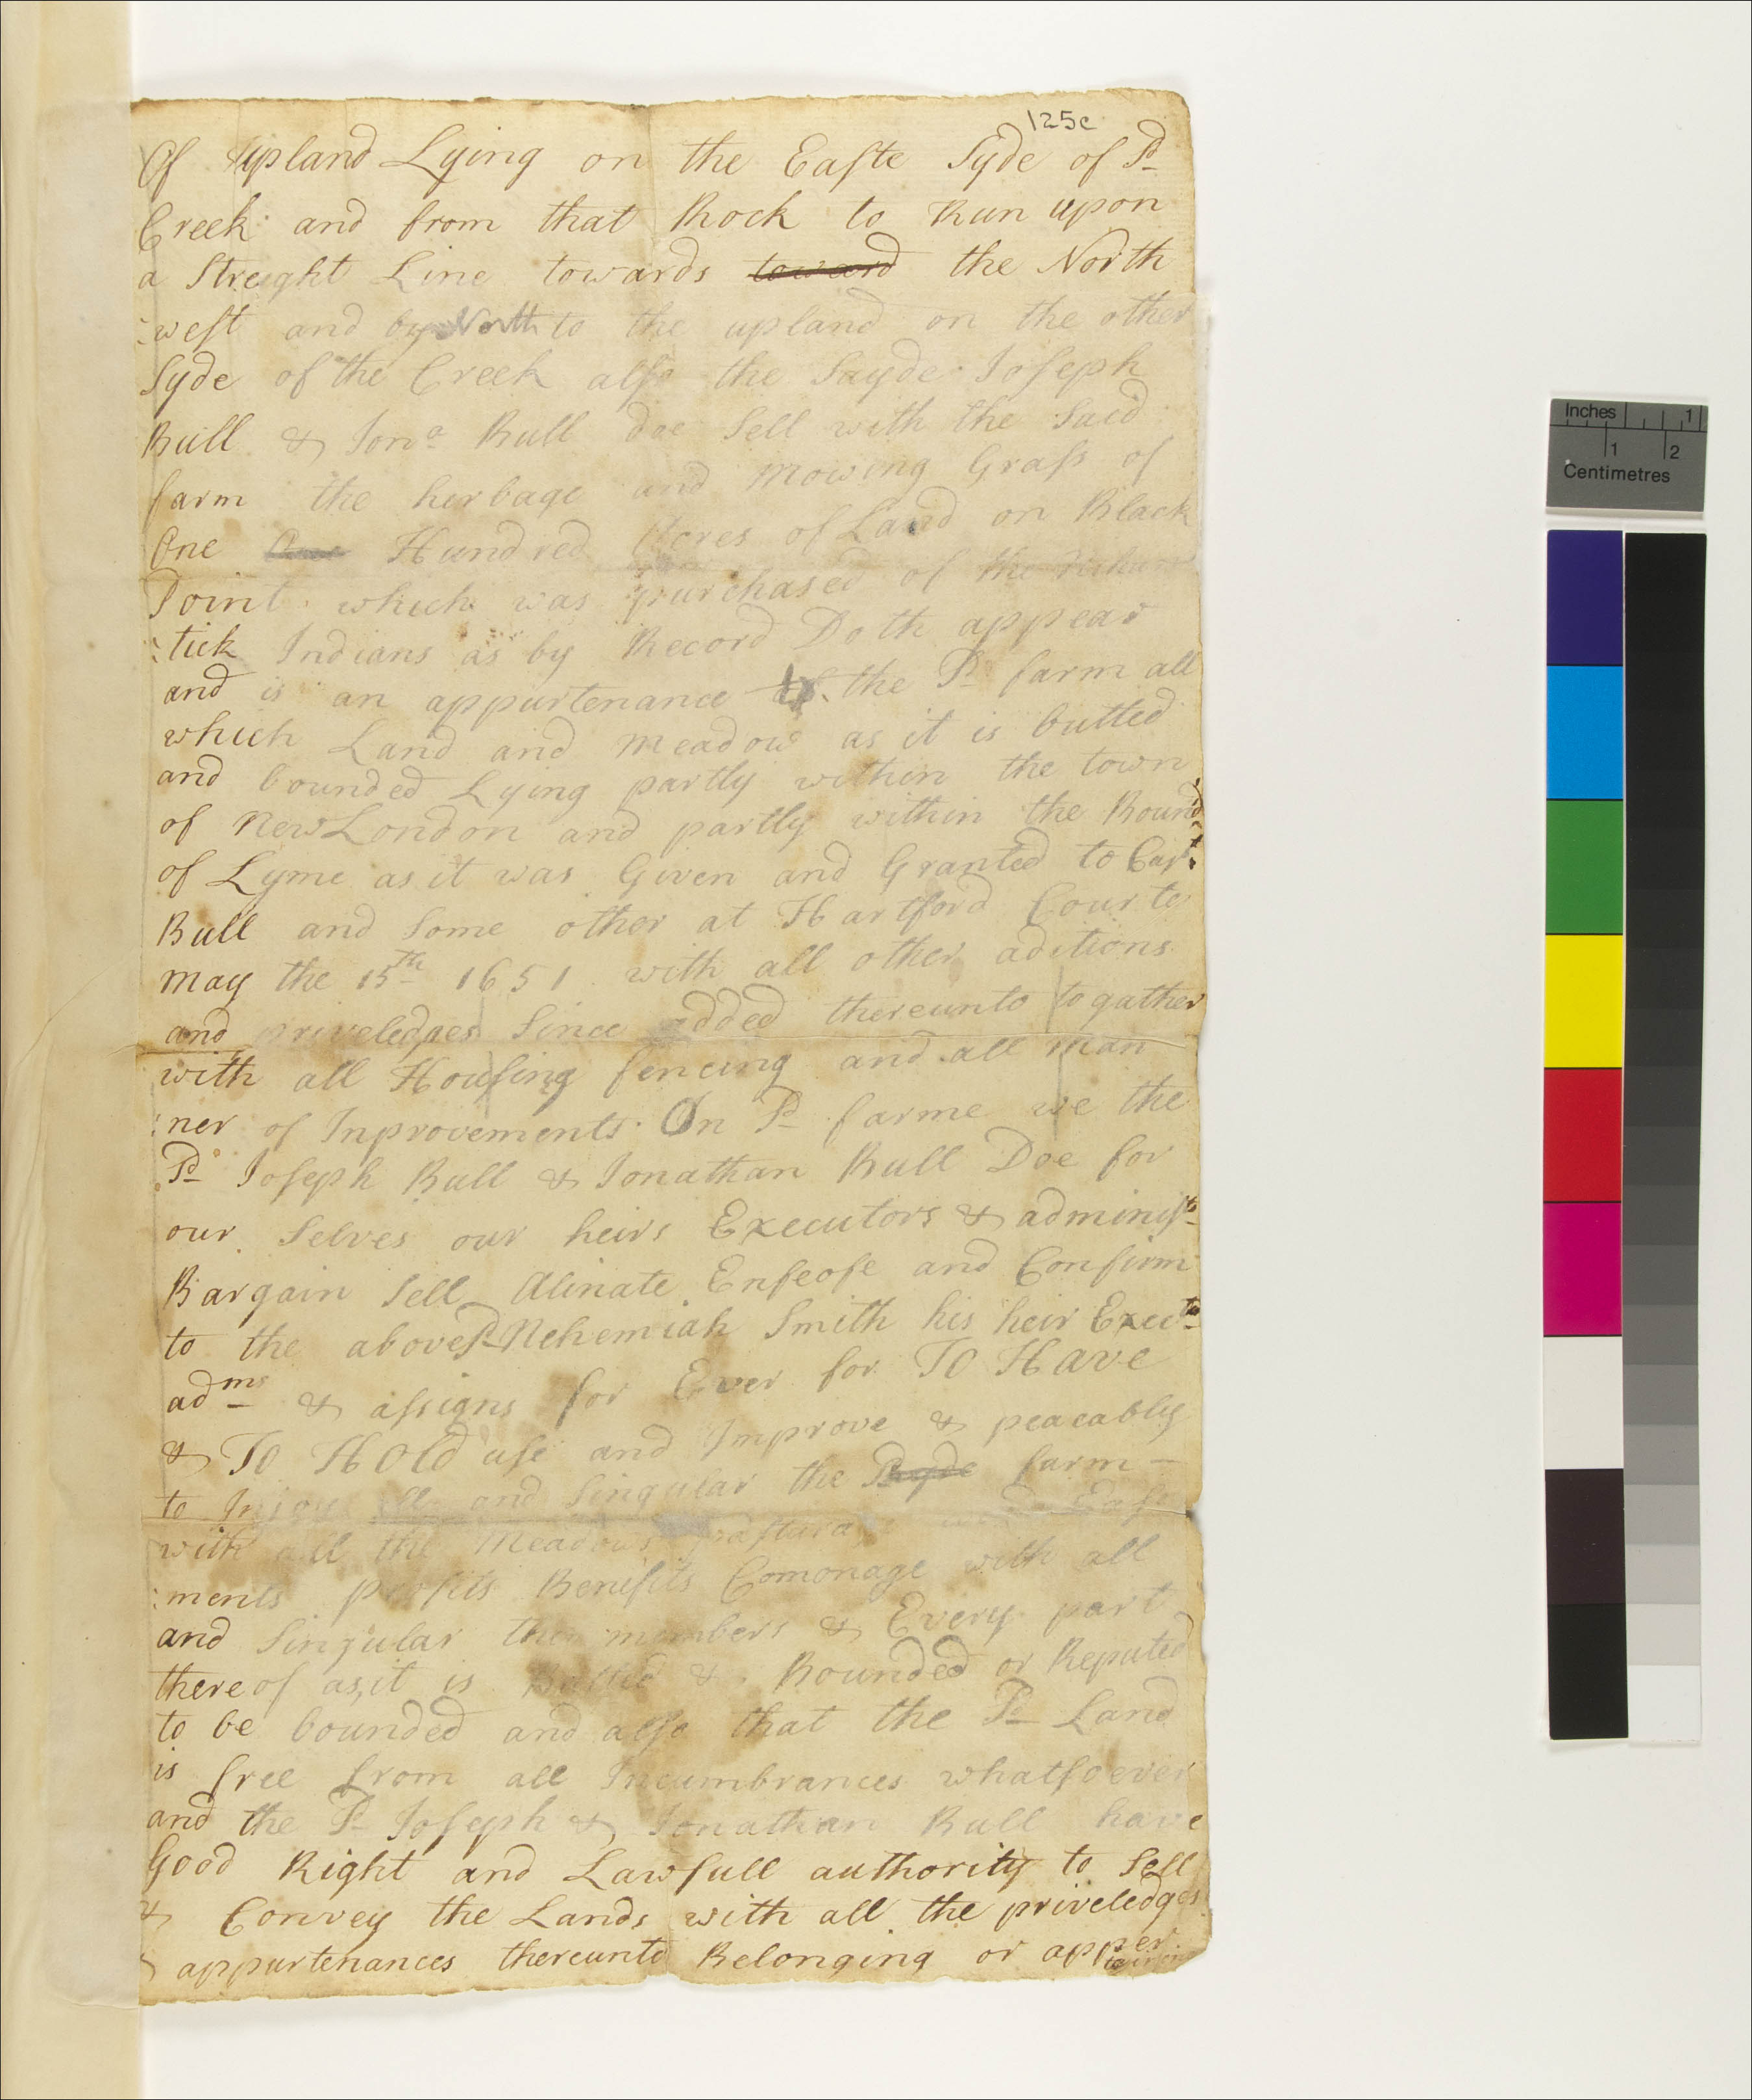 125c
Of upland Lying on the Easte Syde of Sd
Creek and from that Rock to Run upon
a Streight Line towards toward the North
west and by North to the upland on the other
Syde of the Creek also the Sayde Joseph
Bull & Jona Bull doe Sell with the Said
farm the herbage and mowing Grass of
One One Hundred Acres of Land on Black
Point which was purchased of the
tick Indians as by Record Doth appear
and is an appurtenance of the Sd farm all
which Land and meadow as it is butted
and bounded Lying partly within the town
of New London and partly within the Bounds
of Lyme as it was Given and Granted to Capt
Bull and Some other at Hartford Courte
may the 15th 1651 with all other aditions
and priveledges Since added thereunto togather
with all Housing fencing and all man
ner of Inprovements On Sd farme we the
Sd Joseph Bull & Jonathan Bull Doe for
our Selves our heirs Executors & administ
Bargain Sell Alinate Enfeofe and Confirm
to the above Sd Nehemiah Smith his heir Execto
adms & assigns for Ever for To Have
& To Hold use and Improve & peacably
to Injoy all and Singular the Sayde farm
with all the Meadows pasturage Ease
ments profits Benifits Comonage with all
and Singular the members & Every part
thereof as it is Butted & Bounded or Reputed
to be bounded and also that the Sd Land
is free from all Incumbrances whatsoever
and the Sd Joseph & Jonathan Bull have
Good Right and Lawfull authority to Sell
& Convey the Lands with all the priveledges
& appurtenances thereunto Belonging or apper
taining
Inches 1
1 2
Centimetres